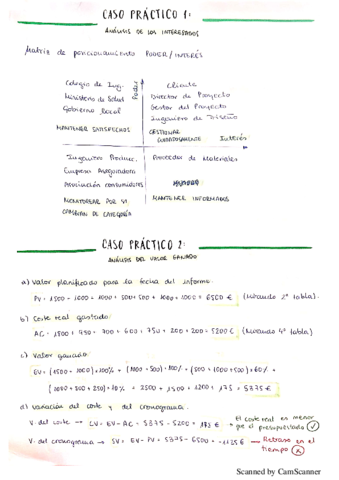 CASO PRÁCTICO 1:
ANÁLISIS DE LOS INTERESADOS
Matriz de posicionamiento PODER/INTERÉS
Poder
Colegio de Ing.
Ministerio de Salud
Gobierno local
MANTENER SATISFECHOS
Cliente
Director de Proyecto
Gestor del Proyecto
Ingeniero de Diseño
GESTIONAR
CUIDADOSAMENTE
Interés
Ingeniero Produc.
Empresa Aseguradora
Asociación consumidores
MONITOREAR POR SI
CAMBIAN DE CATEGORÍA
Proveedor de Materiales
MANTENER INFORMADOS
CASO PRÁCTICO 2:
ANÁLISIS DEL VALOR GANADO
a) Valor planificado para la fecha del informe
PV = 1500 + 1000 + 1000 + 500 + 500 + 1000 + 1000 = 6500 € (Mirando 2ª tabla).
b) Coste real gastado
AC = 1500 + 950 + 700 + 600 + 750 + 200 + 200 = 5200 € (Mirando 4ª tabla)
c) Valor ganado
EV = (1500 + 1000) * 100% + (1000 + 500) * 100% + (500 + 1000 + 500) * 60% +
+ (1000 + 500 + 250) * 10% = 2500 + 1500 + 1200 + 175 = 5375 €
d) Variación del coste y del cronograma.
V. del coste → CV = EV - AC = 5375 - 5200 = 175 € → El coste real es menor
que el presupuestado
V. del cronograma → SV = EV - PV = 5375 - 6500 = -1125 € → Retraso en el
tiempo
Scanned by CamScanner